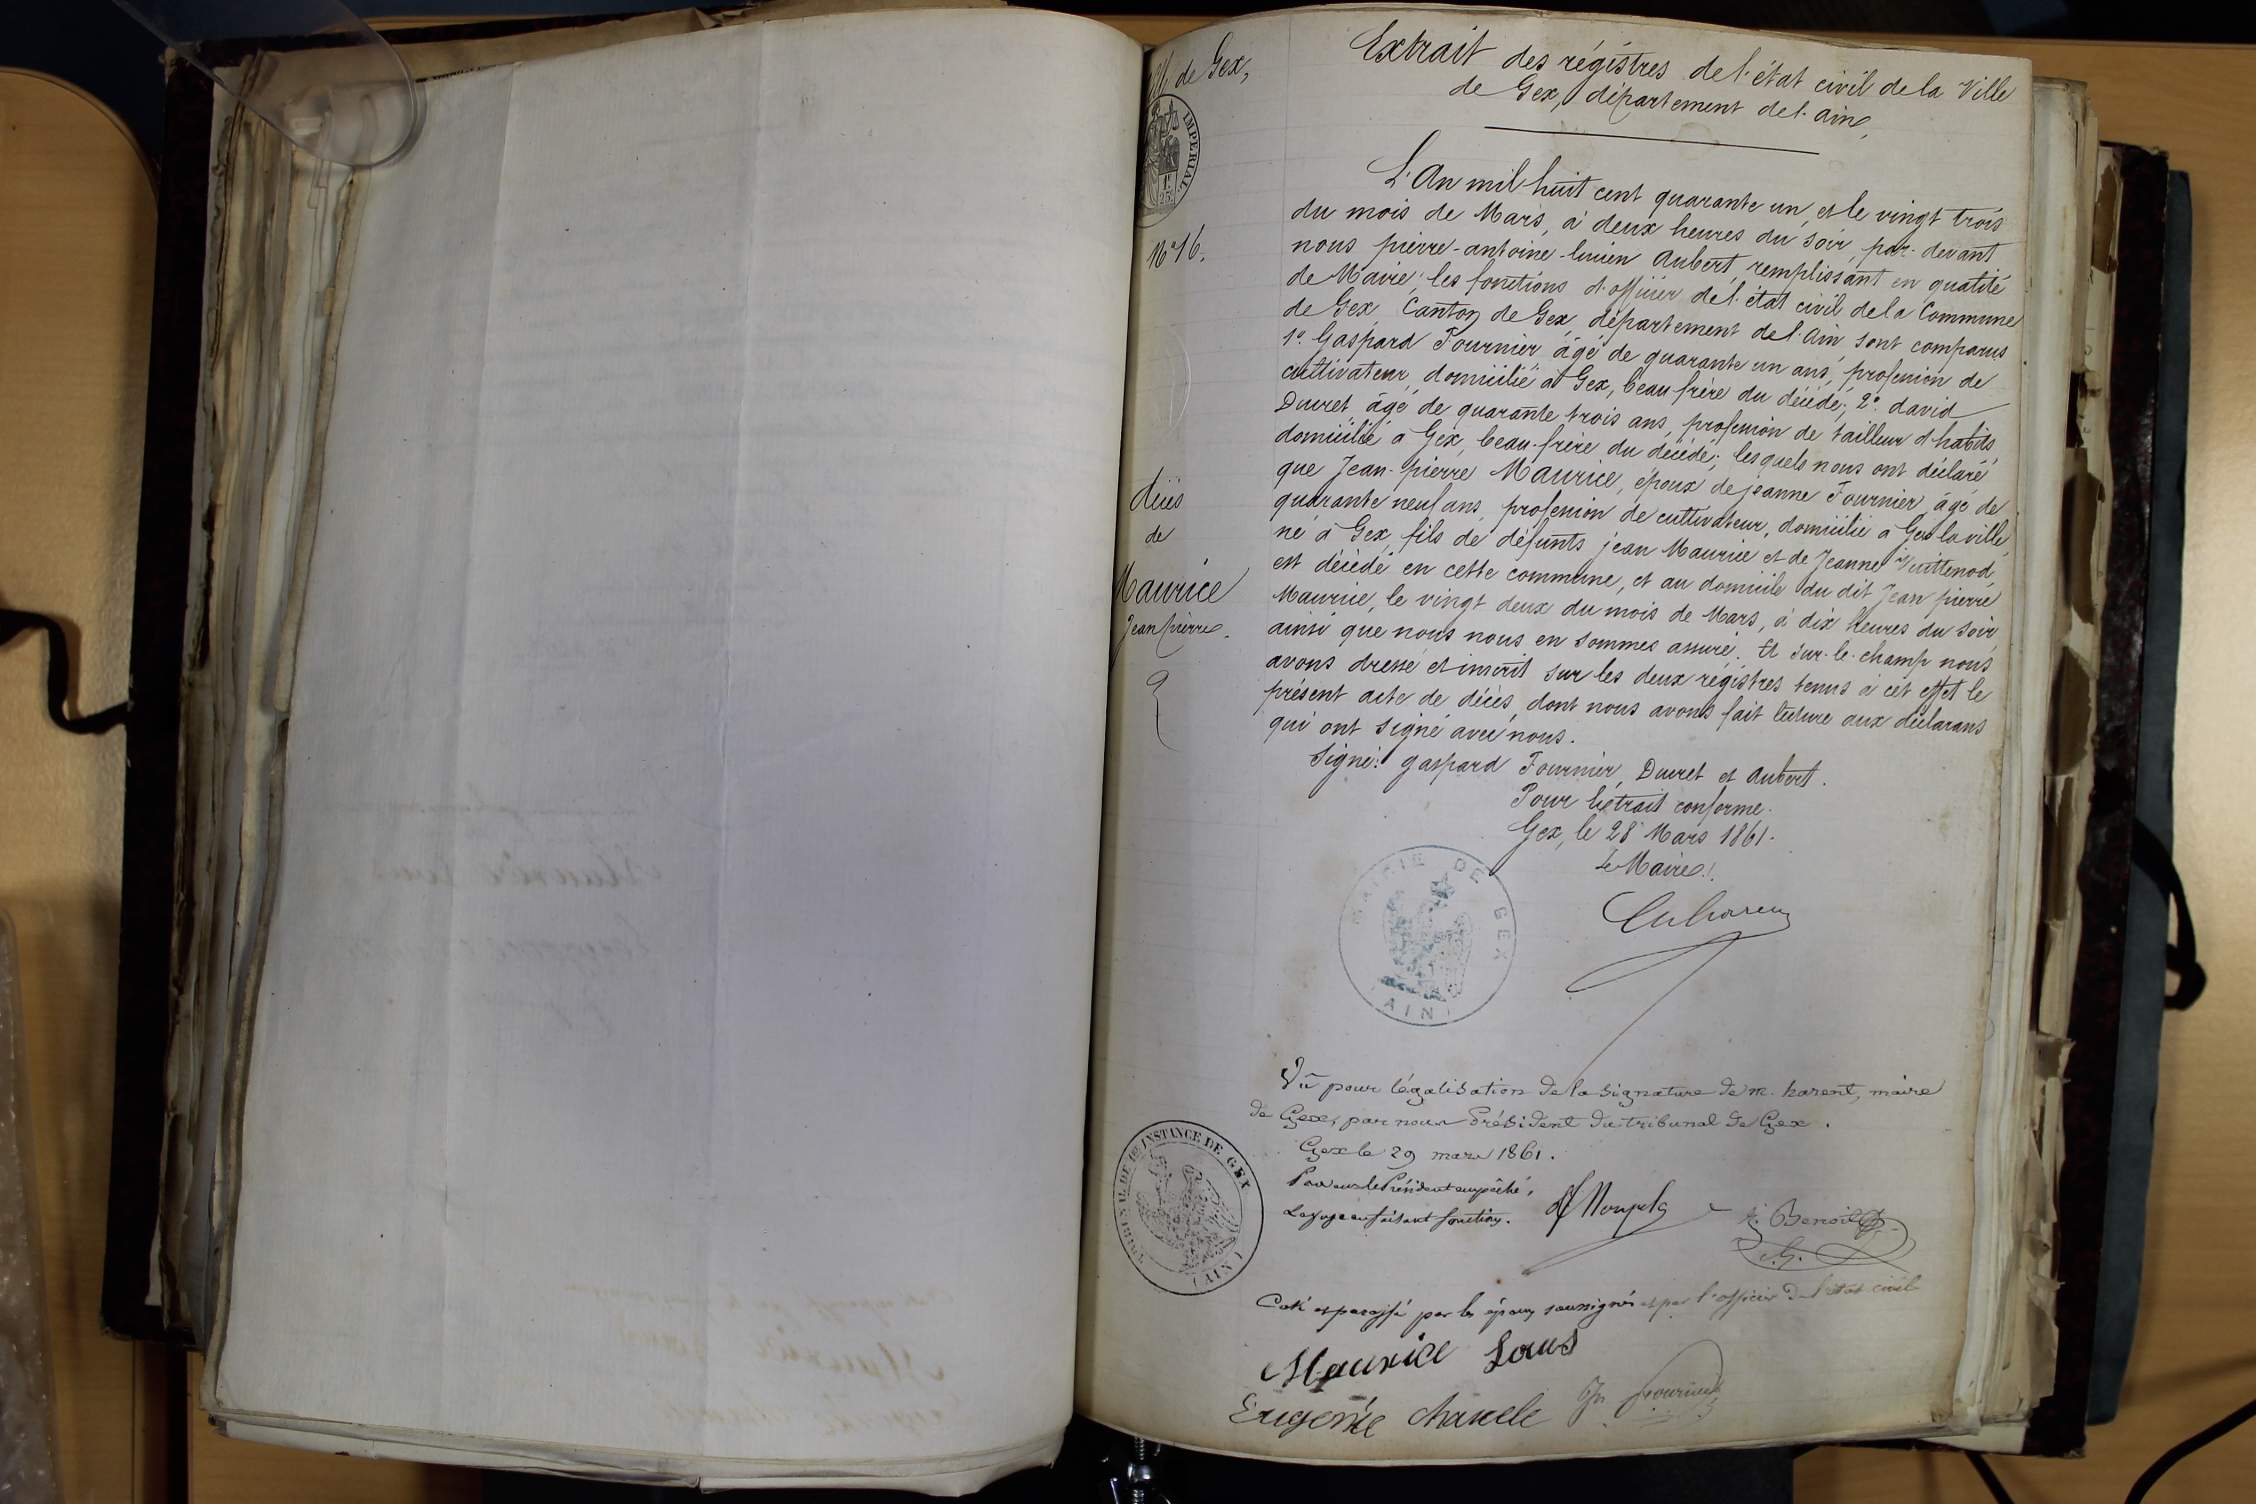 de Gex,
IMPERIAL
1F
25
N° 16.
décès
de
Maurice
Jean pierre.
Extrait des régistres de l'état civil de la Ville
de Gex, département de l'ain,
L'An mil huit cent quarante un, et le vingt trois
du mois de Mars, à deux heures du soir, par-devant
nous pierre-antoine-lucien Aubert, remplissant en qualité
de Maire, les fonctions d'officier de l'état civil de la Commune
de Gex Canton de Gex, département de l'Ain sont comparus
1° Gaspard Fournier âgé de quarante un ans, profession de
cultivateur, domicilié à Gex, beau frère du décédé; 2° david
Ducret âgé de quarante trois ans, profession de tailleur d'habits
domicilié à Gex, beau-frère du décédé; lesquels nous ont déclaré
que Jean-pierre Maurice, époux de jeanne Fournier âgé de
quarante neuf ans, profession de cultivateur, domicilié à Gex la ville,
né à Gex, fils de défunts jean Maurice et de Jeanne Vuittenod,
est décédé en cette commune, et au domicile du dit Jean pierre
Maurice, le vingt deux du mois de Mars, à dix heures du soir
ainsi que nous nous en sommes assuré. Et sur-le-champ nous
avons dressé et inscrit sur les deux régistres tenus à cet effet le
présent acte de décès, dont nous avons fait lecture aux déclarans
qui ont signé avec nous.
Signé: gaspard Fournier, Ducret et Aubert.
Pour Extrait conforme.
Gex, le 28 Mars 1861.
Le Maire:
MAIRIE DE GEX
(AIN)
Vu pour légalisation de la signature de m. harent, maire
de Gex, par nous Président du tribunal de Gex.
Gex le 29 mars 1861.
Pour nous le Président empêché,
Le juge en faisant fonction.
Benoit
TRIBUNAL DE 1re INSTANCE DE GEX
(AIN)
Coté et paraffé par les époux soussignés et par l'officier de l'état civil
Maurice Louis
Eugénie Chanele